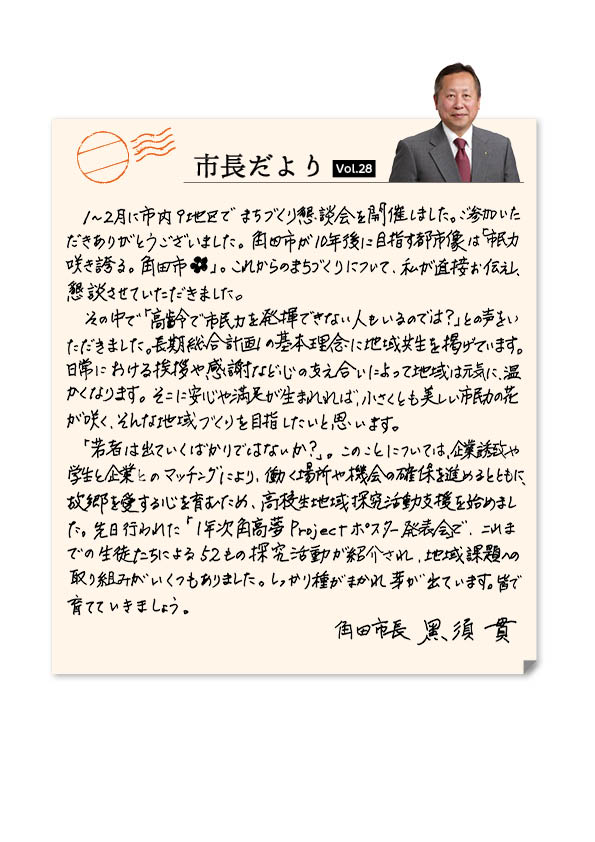 市長だより Vol.28
1~2月に市内9地区でまちづくり懇談会を開催しました。ご参加いた
だきありがとうございました。角田市が10年後に目指す都市像は「市民力
咲き誇る。角田市」。これからのまちづくりについて、私が直接お伝えし、
懇談させていただきました。
その中で「高齢で市民力を発揮できない人もいるのでは?」との声をい
ただきました。長期総合計画の基本理念に地域共生を掲げています。
日常における挨拶や感謝など心の支え合いによって地域は元気に、温
かくなります。そこに安心や満足が生まれれば、小さくとも美しい市民力の花
が咲く、そんな地域づくりを目指したいと思います。
「若者は出ていくばかりではないか?」。このことについては、企業誘致や
学生と企業とのマッチングにより、働く場所や機会の確保を進めるとともに、
故郷を愛する心を育むため、高校生地域探究活動支援を始めまし
た。先日行われた「1年次角高夢Projectポスター発表会で、これま
での生徒たちによる52もの探究活動が紹介され、地域課題への
取り組みがいくつもありました。しっかり種がまかれ芽が出ています。皆で
育てていきましょう。
角田市長 黒須 貫